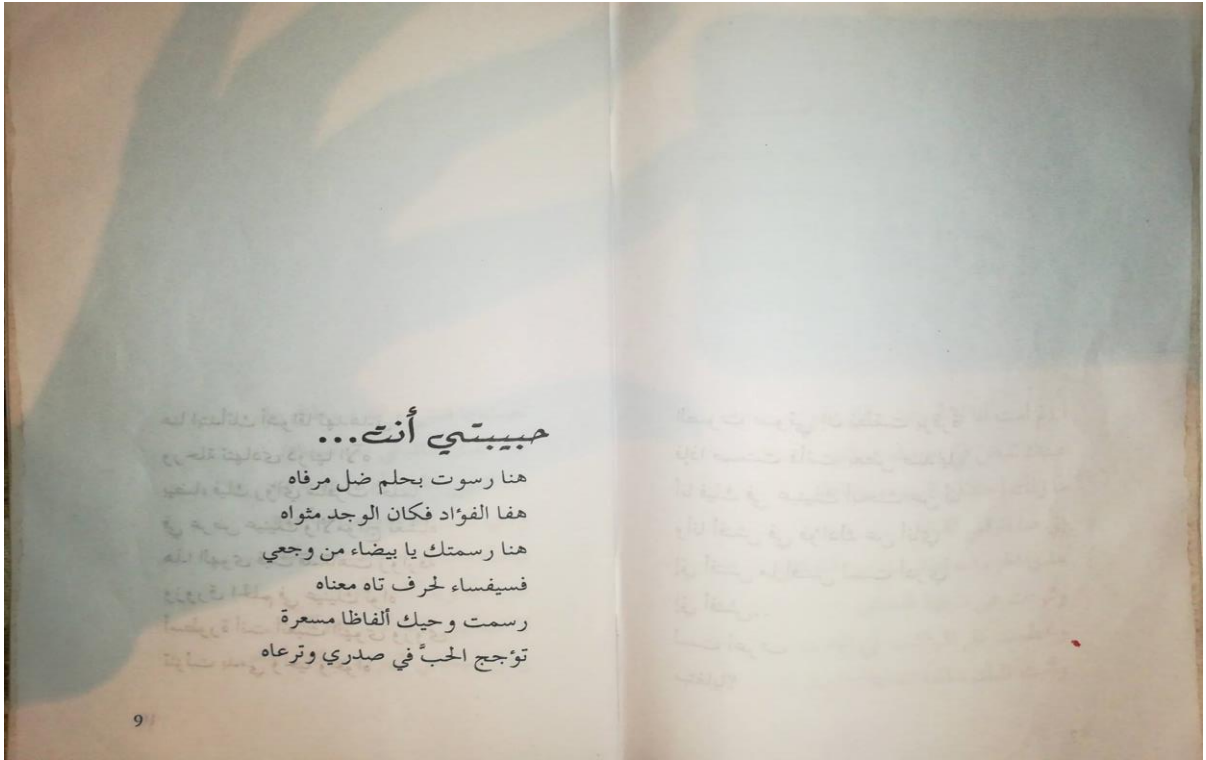 حبيبتي أنت...
هنا رسوت بحلم ضل مرفاه
هفا الفؤاد فكان الوجد مثواه
هنا رسمتك يا بيضاء من وجعي
فسيفساء لحرف تاه معناه
رسمت وحيك ألفاظا مسعرة
تؤجج الحبَّ في صدري وترعاه
9